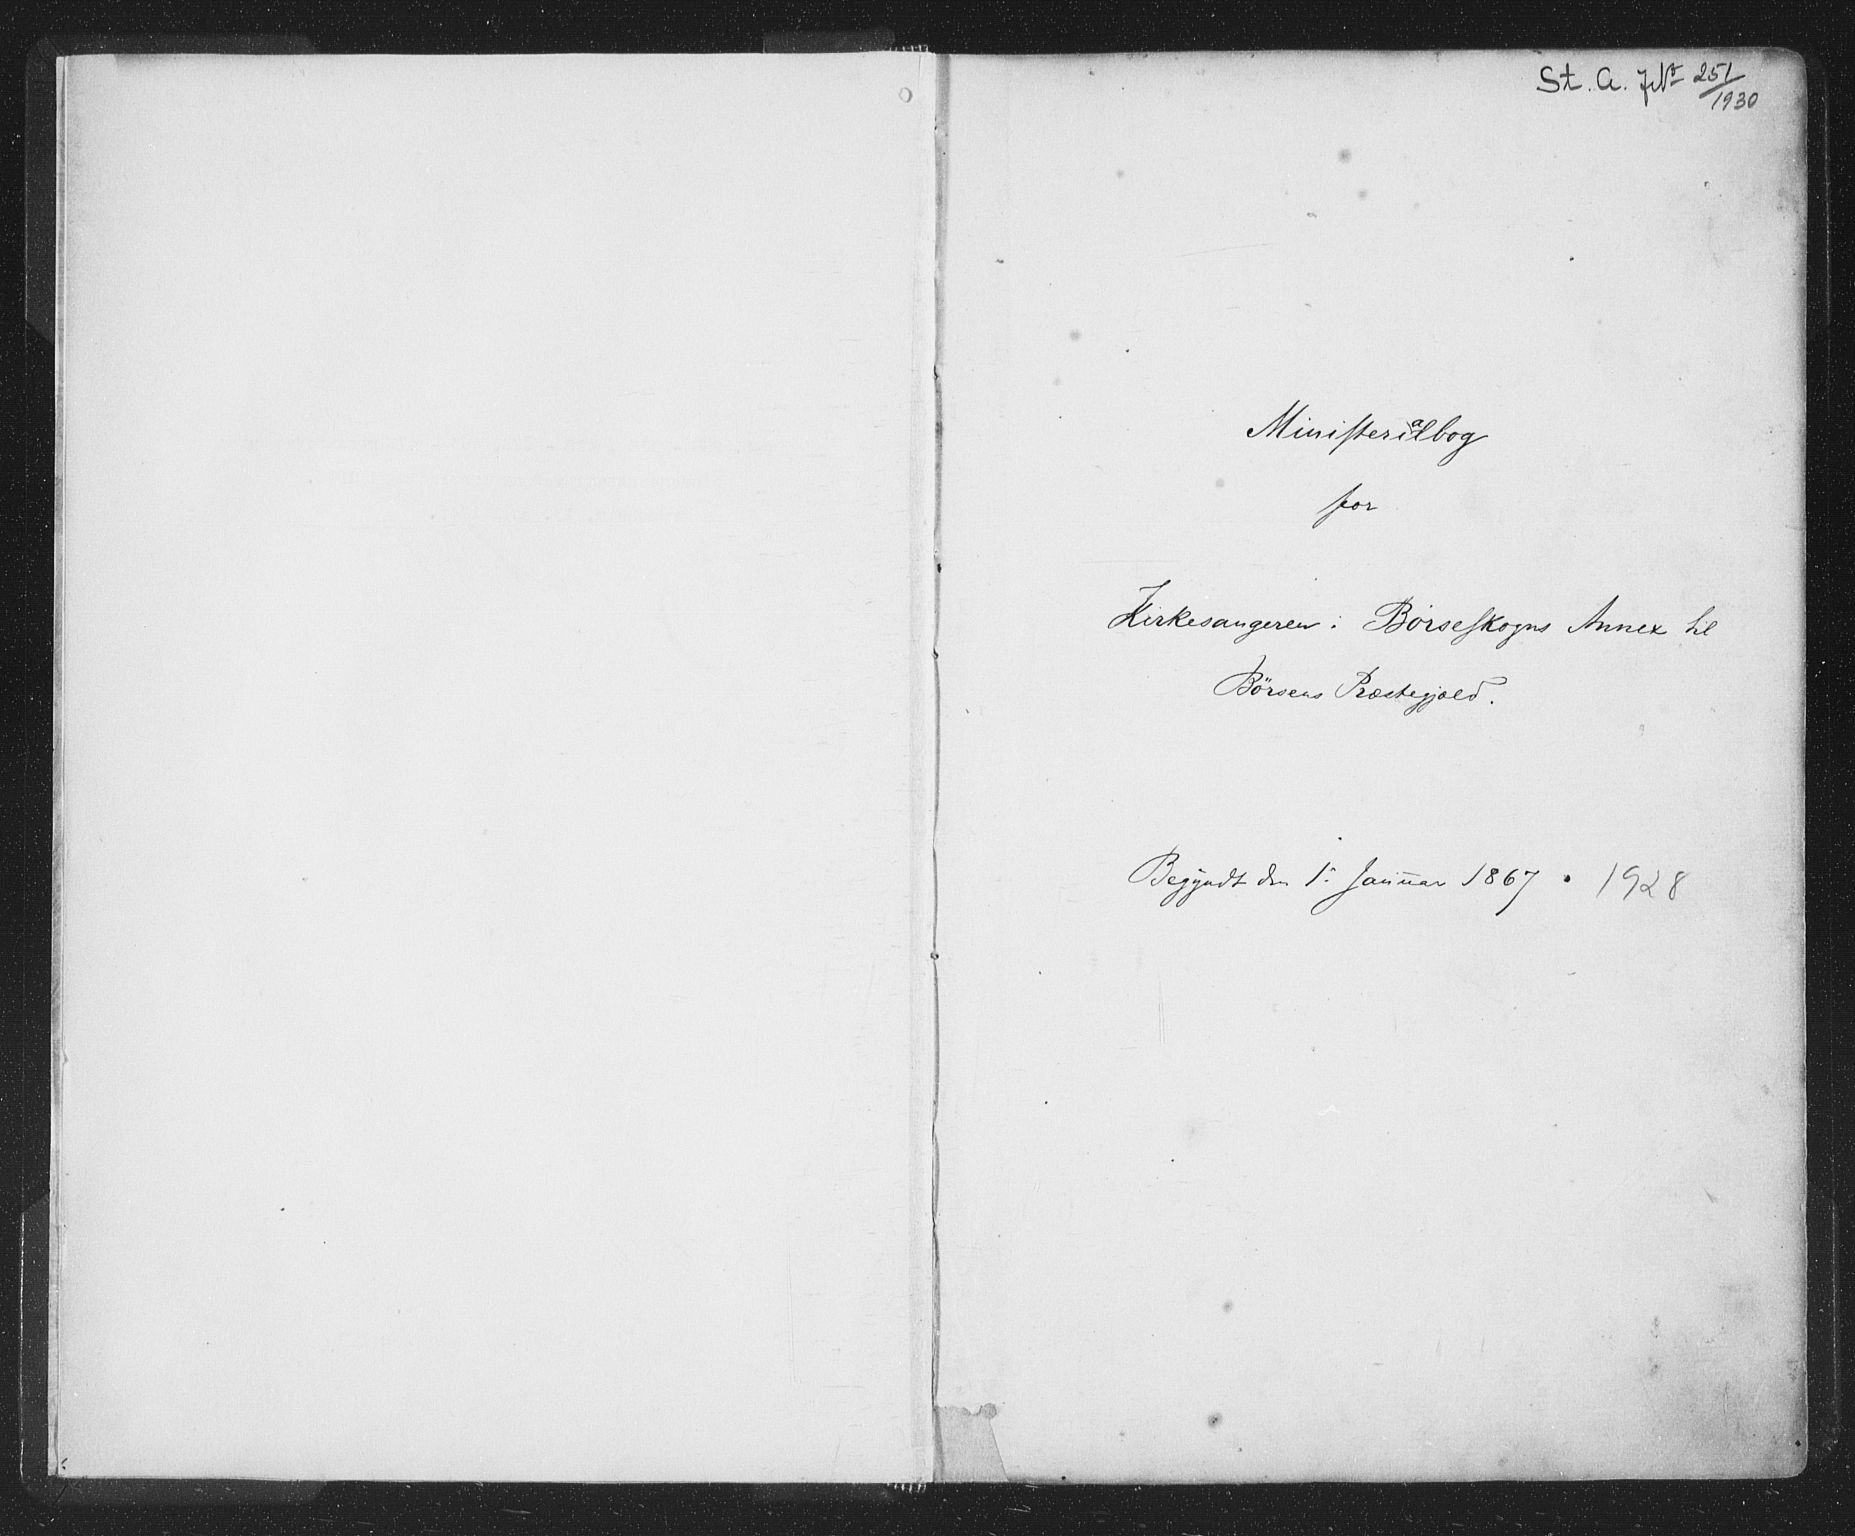 St. A. J№ 251/1930
Ministerialbog
for
Kirkesangeren i Börseskogns Annex til
Börsens Præstegjæld.
Begyndt den 1ᵗᵉ Januar 1867 • 1928